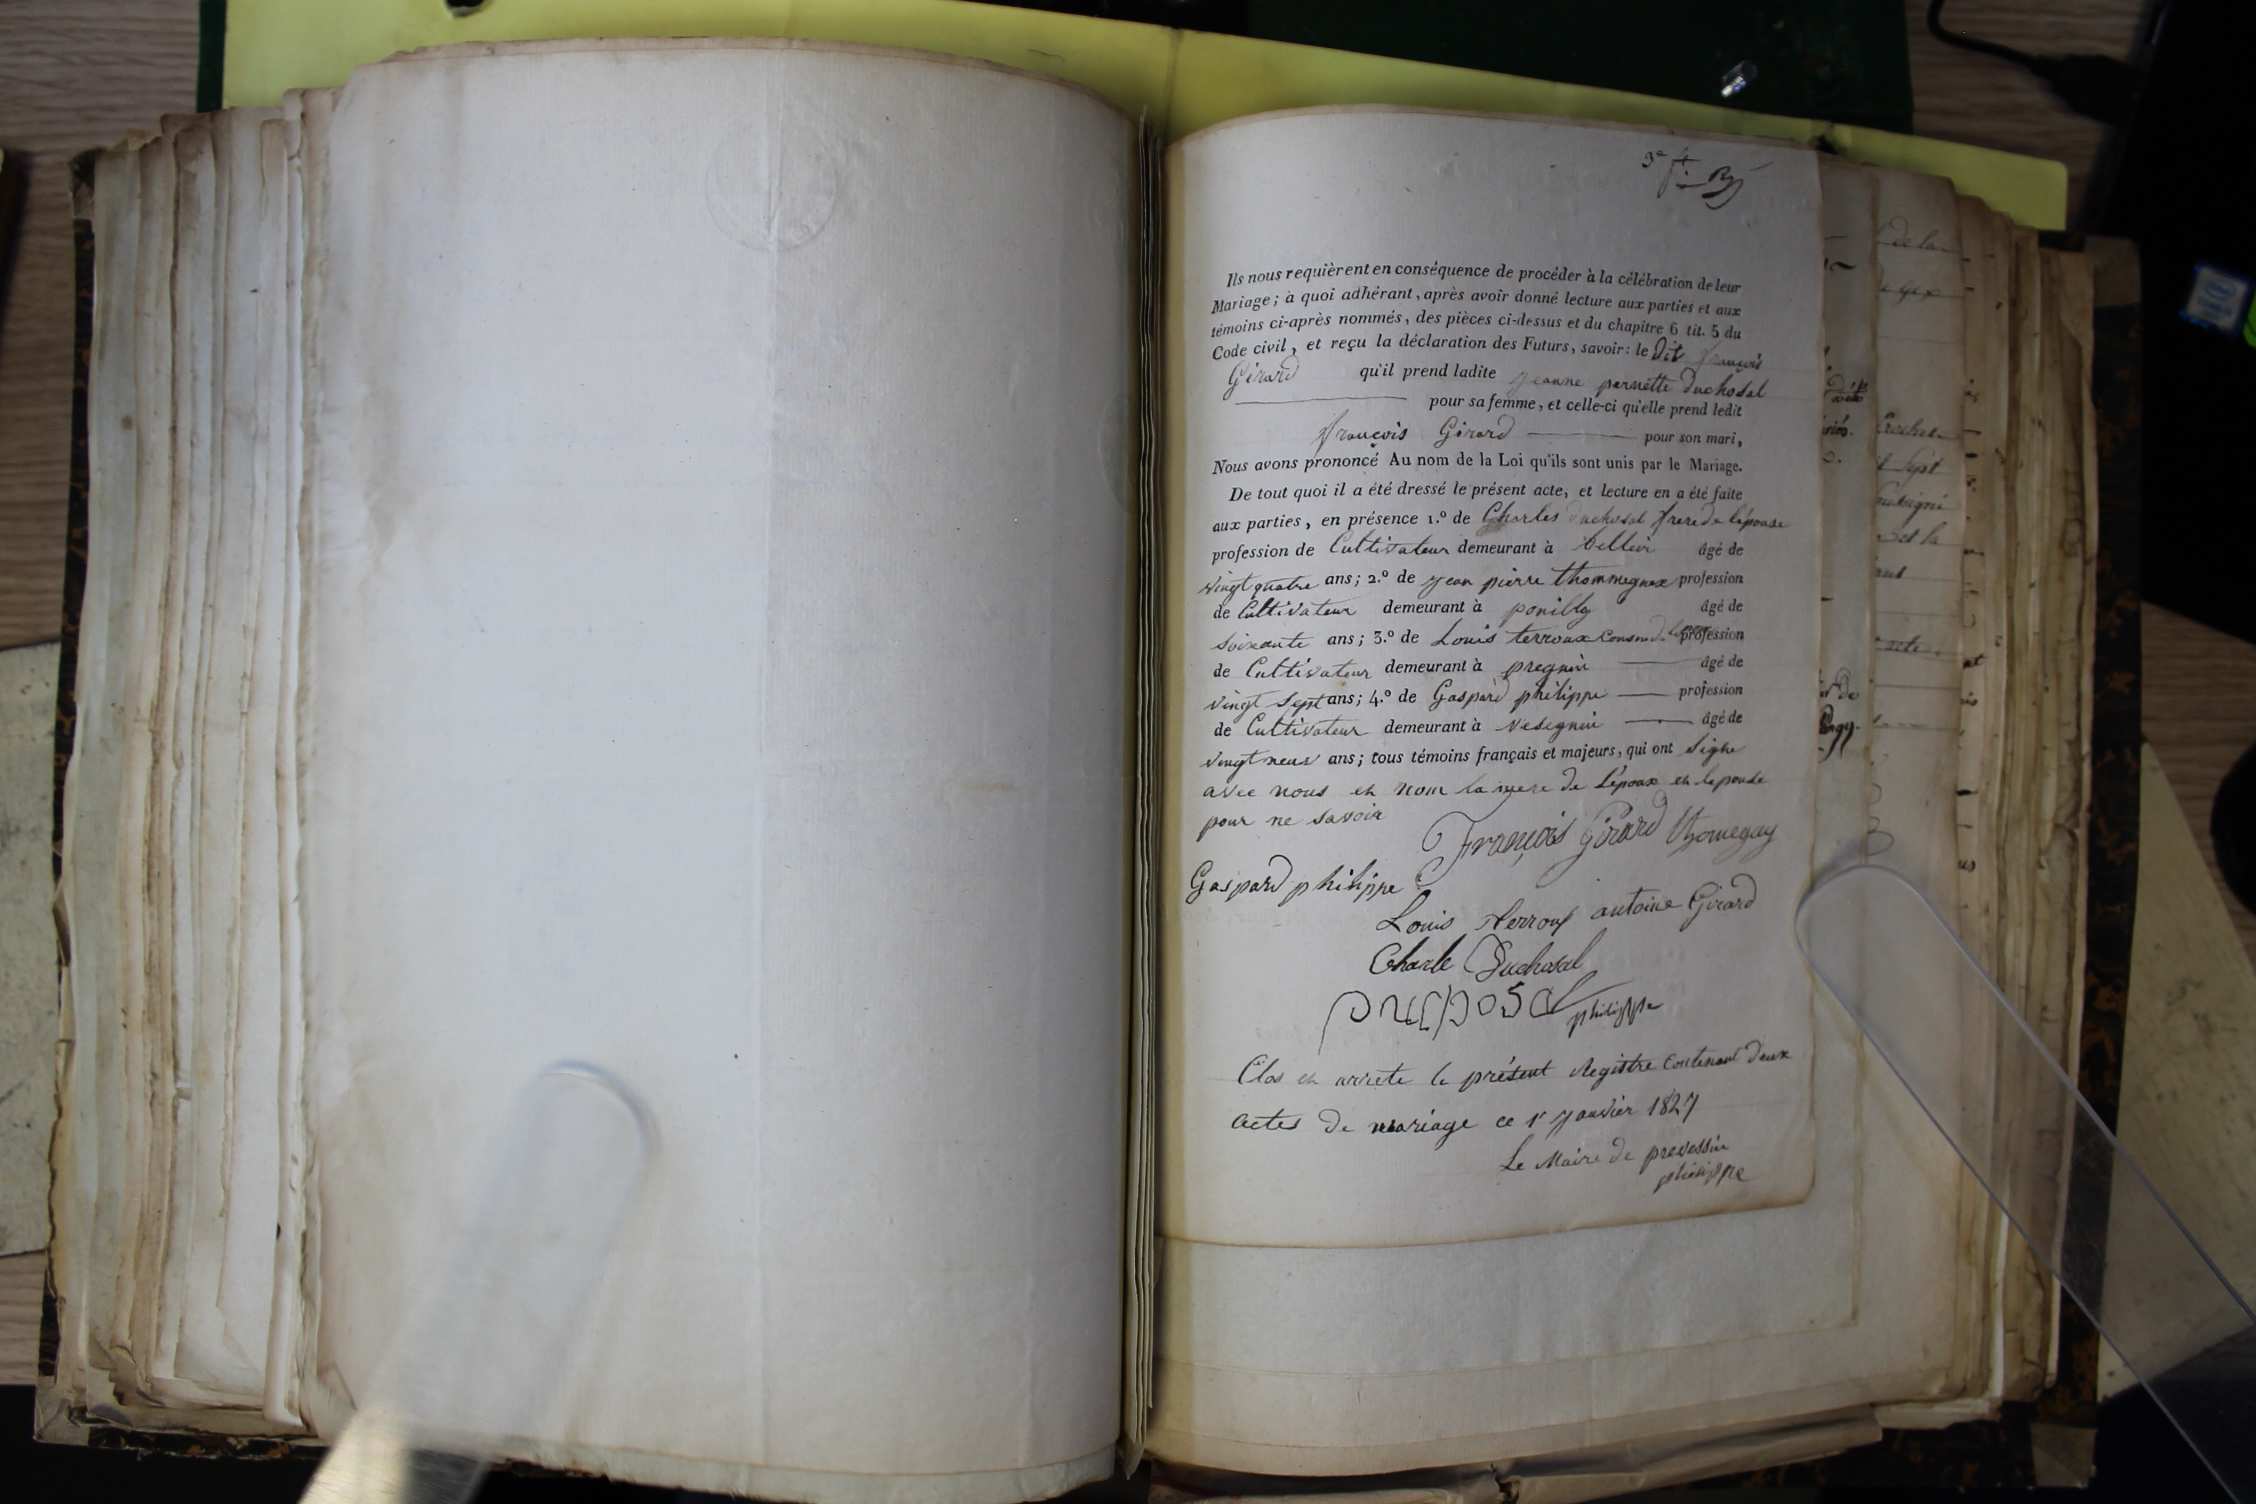 3e
Ils nous requièrent en conséquence de procéder à la célébration de leur
Mariage; à quoi adhérant, après avoir donné lecture aux parties et aux
témoins ci-après nommés, des pièces ci-dessus et du chapitre 6 tit. 5 du
Code civil, et reçu la déclaration des Futurs, savoir: le dit françois
Girard qu'il prend ladite jeanne pernette Duchosal
pour sa femme, et celle-ci qu'elle prend ledit
françois Girard pour son mari,
Nous avons prononcé Au nom de la Loi qu'ils sont unis par le Mariage.
De tout quoi il a été dressé le présent acte, et lecture en a été faite
aux parties, en présence 1.º de Charles duchosal frere de lépouse
profession de Cultivateur demeurant à âgé de
vingt quatre ans; 2.º de jean pierre thommegnex profession
de Cultivateur demeurant à ponilly âgé de
soixante ans; 3.º de Louis terroux profession
de Cultivateur demeurant à pregnin âgé de
vingt Sept ans; 4.º de Gaspard philippe profession
de Cultivateur demeurant à vesegnin âgé de
vingt neuf ans; tous témoins français et majeurs, qui ont signe
avec nous et non la mere de Lépoux et lepouse
pour ne savoir
François Girard thomegay
Gaspard philippe
Louis terroux antoine Girard
Charle Duchosal
Duchosal philippe
Clos et arrete le présent Registre Contenant deux
actes de mariage ce 1r janvier 1827
Le Maire de prevessin
philippe